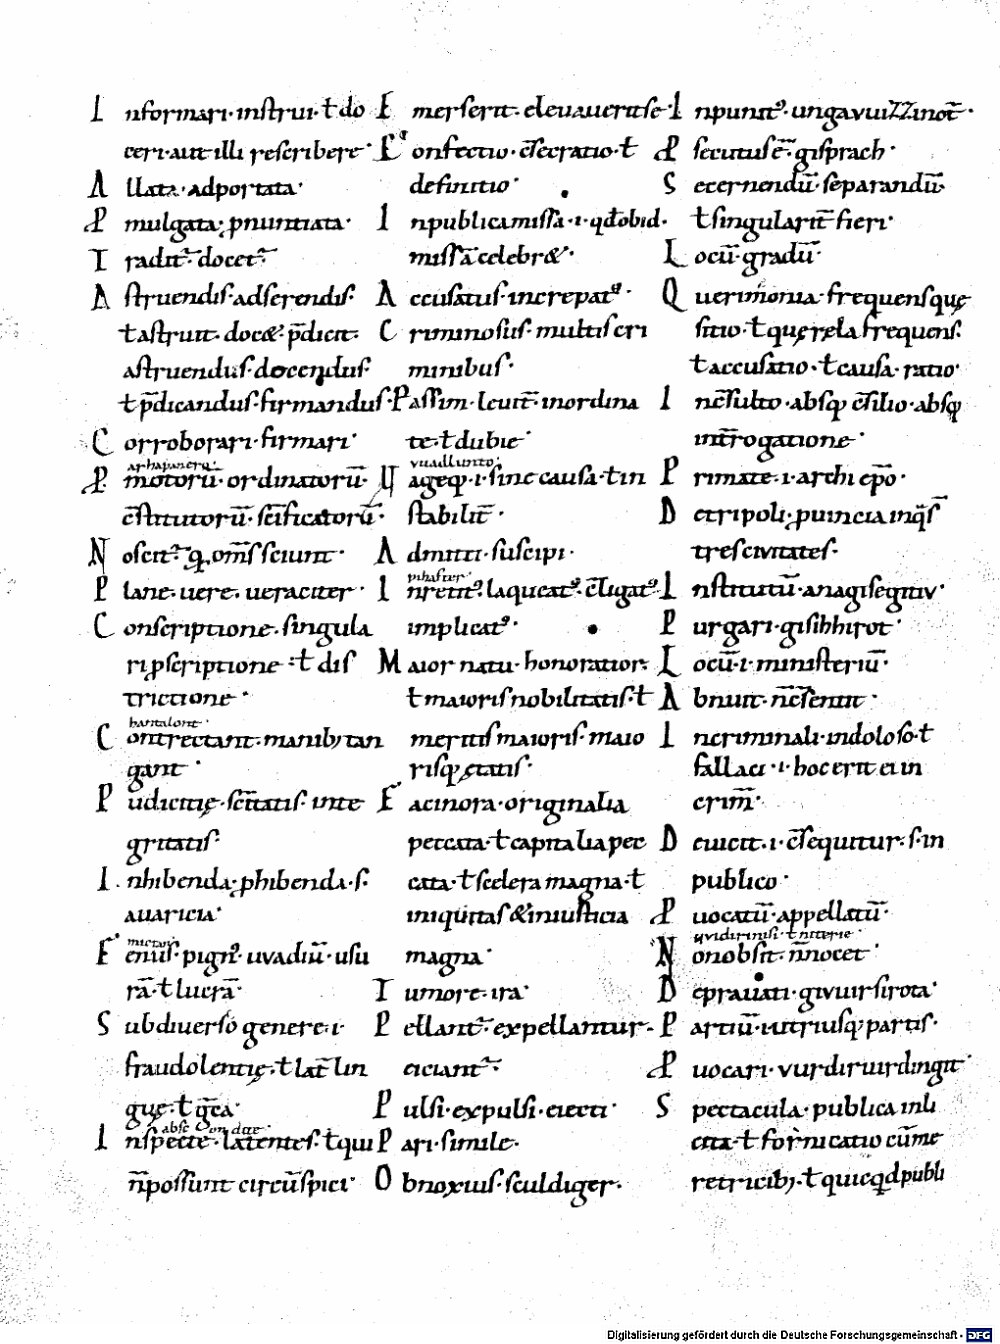 I nformari· instrui· ƚ do
ceri· aut illi rescribere·
A llata· adportata·
P mulgata· pnuntiata·
T radit̄· docet̄·
A struendis· adserendis·
ƚ astruit· docet p̄dicit·
astruendus· docendus·
ƚ p̄dicandus· firmandus·
C orroborari· firmari·
P motorū· ordinatorū·
c̄stitutorū· sc̄ificatorū·
N oscit̄· q· om̄s sciunt·
P lane· uere· ueraciter·
C onscriptione· singula
ri pscriptione· ƚ dis
trictione·
hantalont·
C ontrectant· manib; tan
gant·
P udicitię· sc̄itatis· inte
gritatis·
I nhibenda· phibenda· s·
auaricia·
F enus· pign̄· uuadiū· usu
rā· ƚ lucrā·
S ub diuerso genere· i·
fraudolentię· ƚ lat̄ lin
guę· ƚ gc̄a·
abscondite·
I nspecte· latentes· ƚ qui
n̄ possunt circūspici·
E merserit· eleuauerit se·
C onfectio· c̄secratio· ƚ
definitio·
I n publica missa· i· qd̄ ob id·
missā celebret·
A ccusatus· increpat᾽·
C riminosus· multis cri
minibus·
P assim· leuit̄· inordina
te· ƚ dubie·
ageq;· i· sine causa· ƚ in
stabilit̄·
A dmitti· suscipi·
pihafter·
I nretit᾽· laqueat᾽· c̄ligat᾽·
implicat᾽·
M aior natu· honoratior·
ƚ maioris nobilitatis· ƚ
meritis maioris· maio
risq; ętatis·
F acinora· originalia
peccata· ƚ capitalia pec
cata· ƚ scelera magna· ƚ
iniquitas & iniusticia
magna·
T umore· ira·
P ellant̄· expellantur·
eiciant̄·
P ulsi· expulsi· eiecti·
P ari· simile·
O bnoxius· sculdiger·
I npunit᾽· ungavuizzinot̄·
P secutus ē· gisprach·
S ecernendū· separandū·
ƚ singularit̄ fieri·
L ocū· gradū·
Q uerimonia· frequens quę
sitio· ƚ querela frequens·
ƚ accusatio· ƚ causa· ratio·
I nc̄sulto· absq; c̄silio· absq;
int̄rogatione·
P rimate· i· archi ep̄o·
D etripoli· puincia in qs̄
tres civitates·
I nstitutū· anagisegitiv·
P urgari· gisihhirot·
L ocū· i· ministeriū·
A bnuit· n̄ c̄sentit·
I ncriminali· indoloso· ƚ
fallaci· i· hoc erit ei in
crim̄·
D eiicit· i· c̄sequitur· s· in
publico·
P uocatū· appellatū·
N on obsit· n̄ nocet·
D eprauati· givuirsirota·
P artiū· utriusq; partis·
P uocari· vurdiruirdingit·
S pectacula· publica inli
cita· ƚ fornicatio cū me
retricib;· ƚ quicqd publi
Digitalisierung gefördert durch die Deutsche Forschungsgemeinschaft - DFG